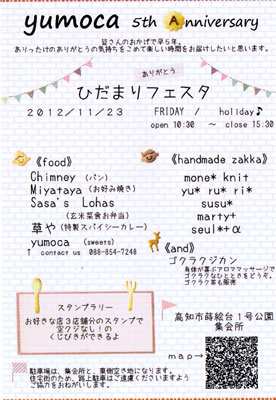 yumoca 5th Anniversary
皆さんのおかげで早５年。
ありったけのありがとうの気持ちをこめて楽しい時間をお届けしたいと思います。
ありがとう
ひだまりフェスタ
2012/11/23 FRIDAY / holiday♪
open 10:30 〜 close 15:30
《food》
Chimney (パン)
Miyataya (お好み焼き)
Sasa's Lohas
(玄米菜食お弁当)
草や (特製スパイシーカレー)
yumoca (sweets)
↑ contact us 088-854-7248
《handmade zakka》
mone* knit
yu* ru* ri*
susu*
marty+
seul*+α
《and》
ゴクラクジカン
身体が喜ぶアロママッサージで
ゴクラクなひとときをどうぞ。
ゴクラク茶も販売
スタンプラリー
お好きな店３店舗分のスタンプで
空クジなし！の
くじびきができるよ
高知市蒔絵台１号公園
集会所
map→
駐車場は、集会所と、東側空き地になります。
住宅街のため、路上駐車はご遠慮くださいますよう
ご協力をおねがいします。